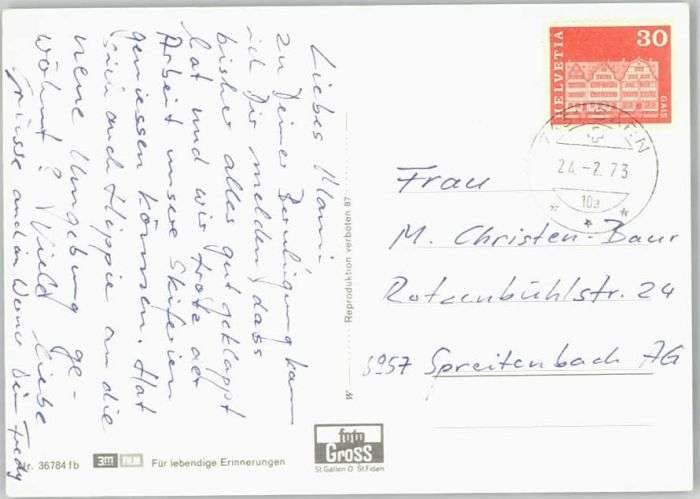 Liebes Mami!
zu Deiner Beruhigung kann
ich Dir melden, dass
bisher alles gut geklappt
hat und wir trotz der
Arbeit unsere Skiferien
geniessen können. Hat
sich auch Hippie an die
neue Umgebung ge-
wöhnt? Viele liebe
Grüsse auch an Dein Fredy
Nr. 36784 fb 3M FILM Für lebendige Erinnerungen
W Reproduktion verboten 87
foto
GROSS
St.Gallen O St.Fiden
HELVETIA 30
GAIS
24.-2.73
10a
Frau
M. Christen-Baur
Rotzenbühlstr. 24
8957 Spreitenbach AG